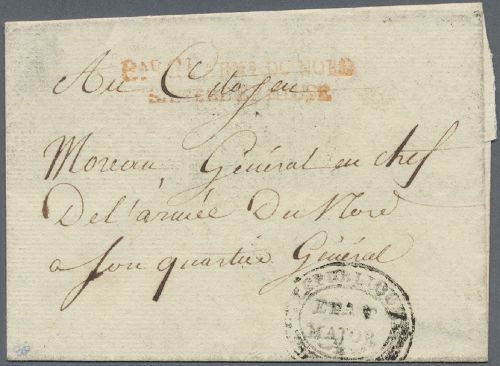 Bau Gl. ARMÉE DU NORD
SAMBRE MEUSE
Au Citoyen
Moreau Général en chef
De l'armée Du Nord
a son quartier Général
REPUBLIQUE
ETAT
MAJOR